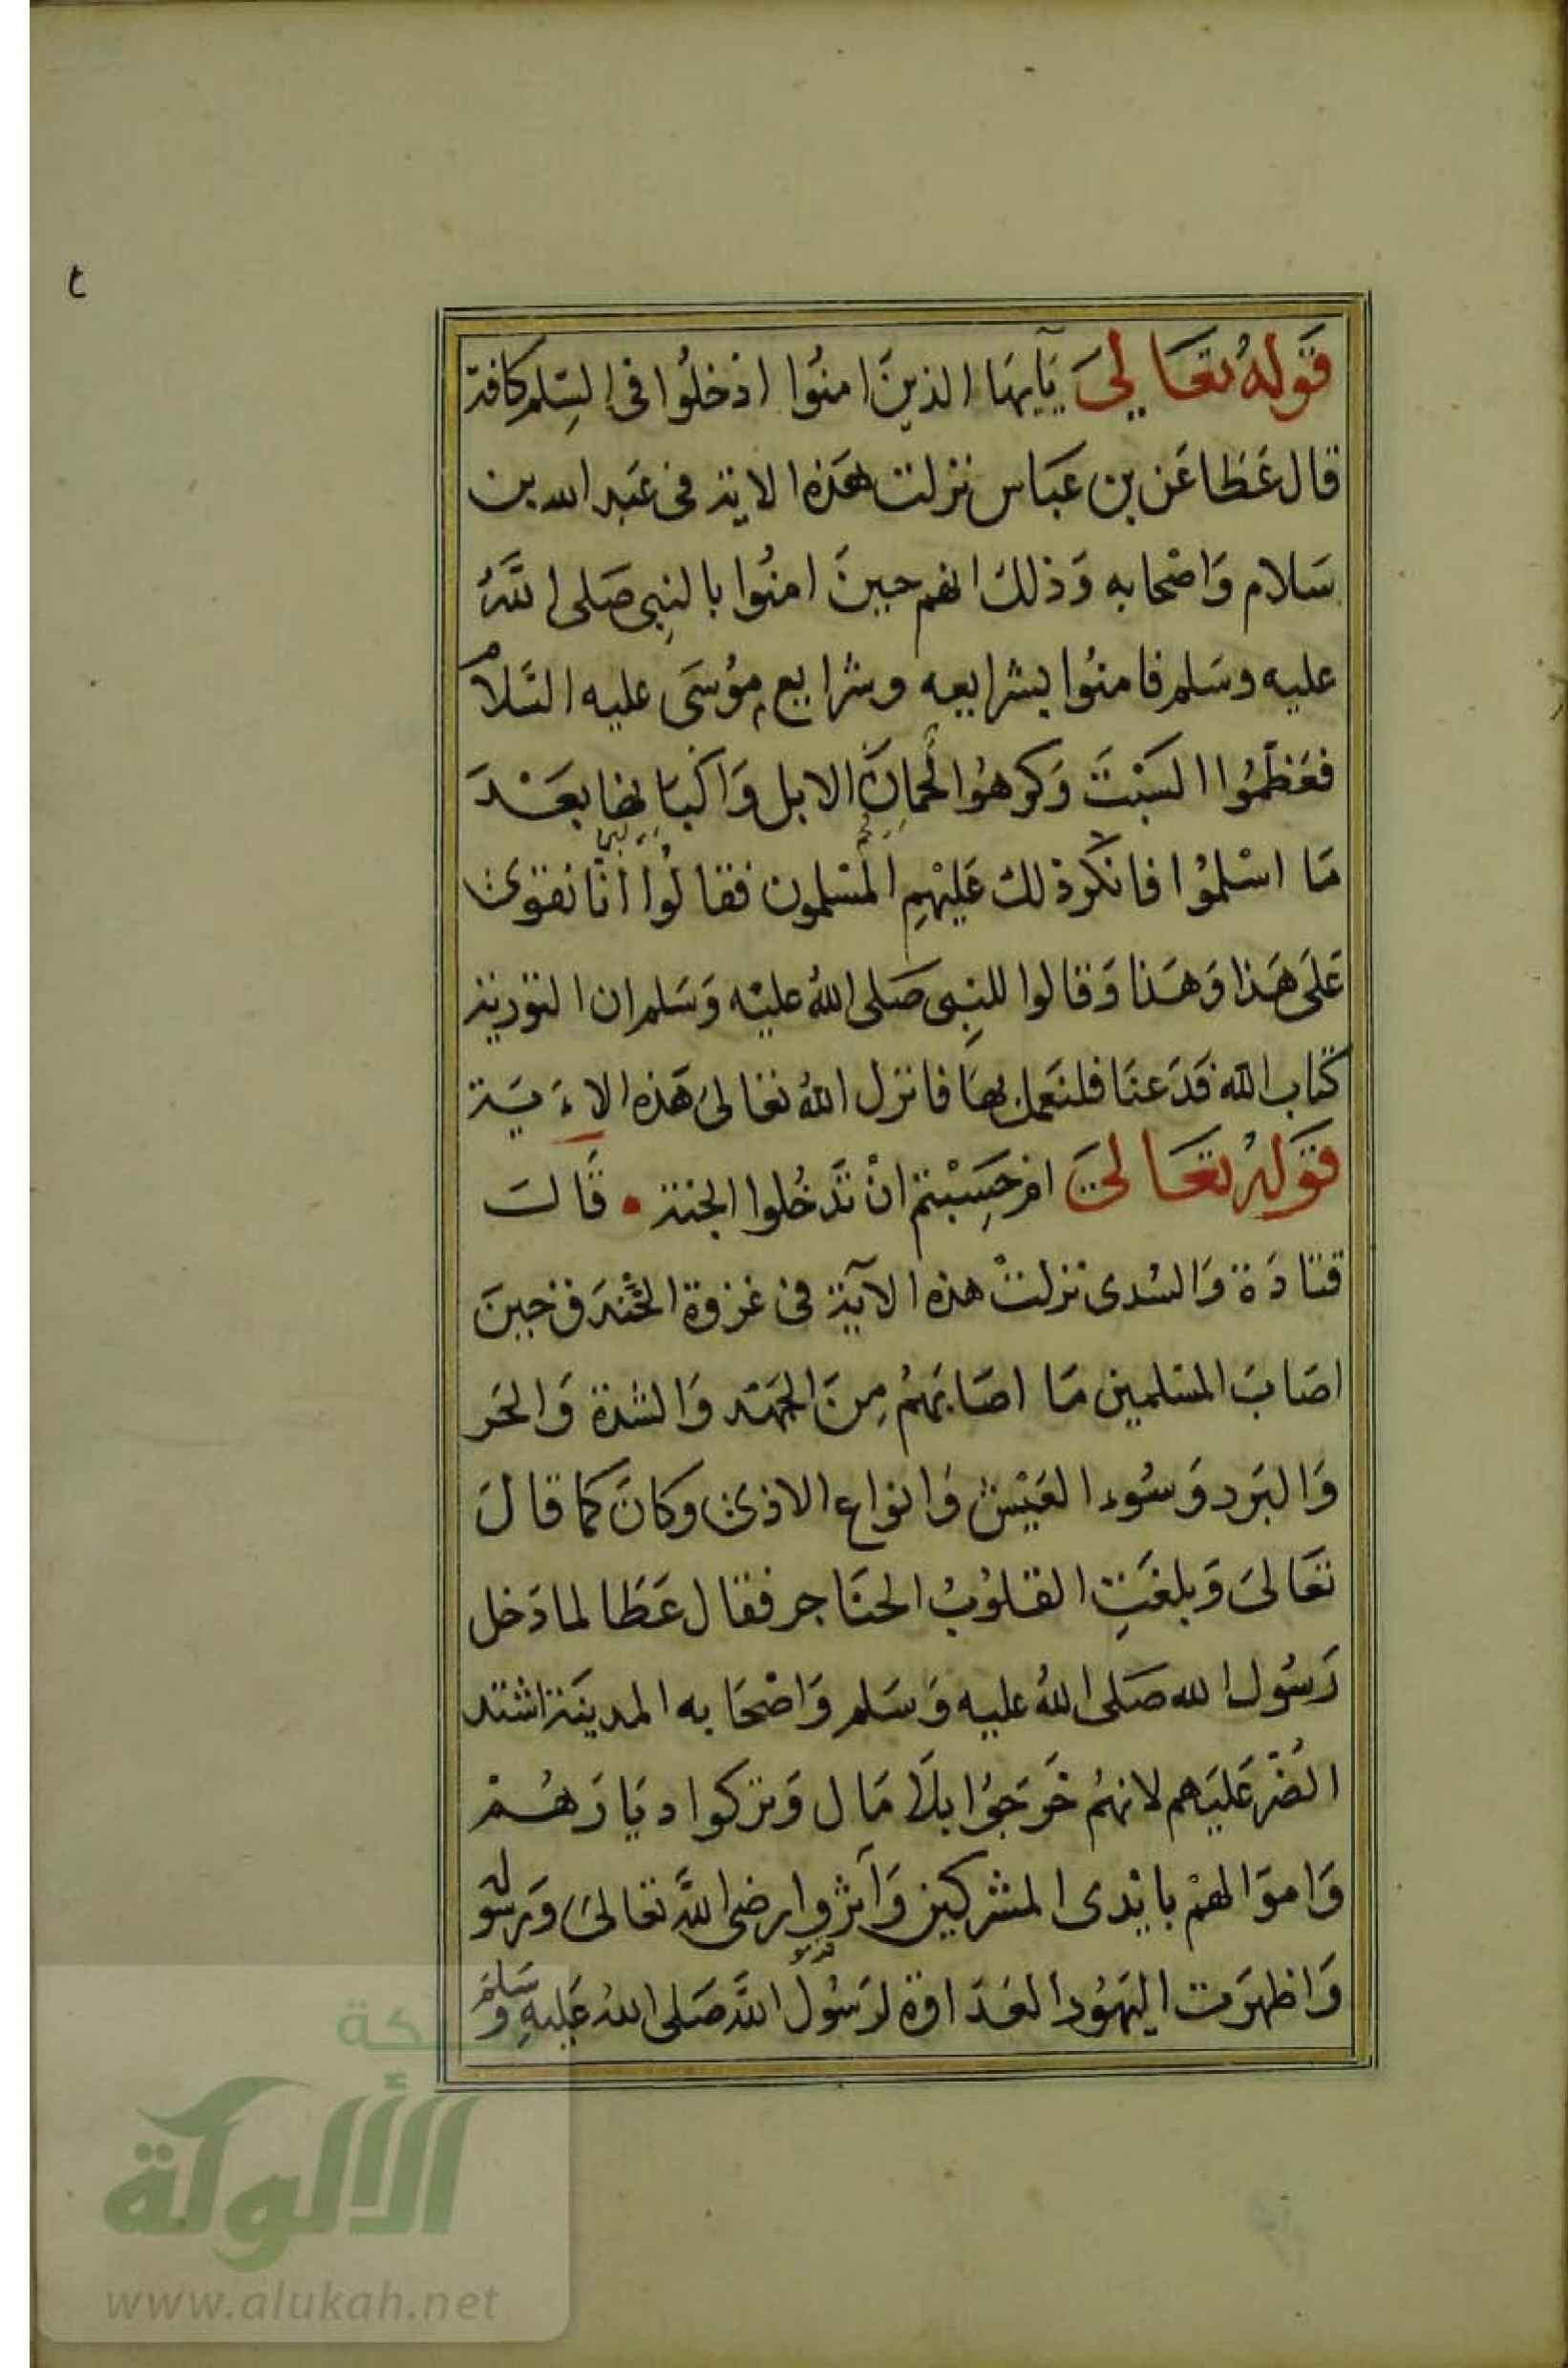 ع
قَولهُ تعَالىَ يَآيهَا الذينَ امنُوا ادْخلُوا فى السِلم كافة
قال عَطَا عَن بن عَبَاس نزلت هَذه الاية فى عَبد الله بن
سَلام وَاصْحابه وَذلك انهم حينَ امنُوا بالنِبى صَلى اللَّهُ
عليه وسَلم فامنُوا بشرايعه وشرايع مُوسَى عليه السَلامُ
فعَظمُوا السَبْتَ وَكرهوُا لُحمانَ الابل وَالبانها بعَدَ
مَا اسْلمُوا فانكر ذلك عَليْهِم المسْلمون فقالوُا انا نقوى
عَلَى هَذا وَهَذا وَقالوا للنِبى صَلى اللهُ عليْه وَسَلم ان التورية
كتاب الله فدَعنَا فلنَعمل بهَا فانزل اللهُ تعَالىَ هَذه الاءَيَة
قَولهُ تعَالىَ امْ حَسِبْتم انْ تَدخُلوا الجنة • قَالَ
قتادَة وَالسُدى نزلتْ هذه الآية فى غزوة الخنَدق حينَ
اصَابَ المسلمين مَا اصَابهُم مِنَ الجهَد وَالشدة وَالحَر
وَالبَرد وَسُوء العَيْش وَانواع الاذى وكانَ كما قالَ
تعَالىَ وَبلغَتِ القلوُبُ الحنَاجر فقال عَطَا لما دَخل
رَسُول الله صَلى اللهُ عليه وَسَلم وَاصْحَابه المدينَة اشتد
الضُر عَليَهم لانهمُ خَرجَوُا بلاَ مَال وَتركوا ديَارَهُمْ
وَاموَالهمْ بايْدى المشركين وَآثروا رضى اللَّه تعَالىَ وَرسُوله
وَاظهرَت اليهَوُد العَدَاوة لرَسُول اللَّه صَلى اللهُ عَليهِ وسَلمَ
شبكة
الألوكة
www.alukah.net